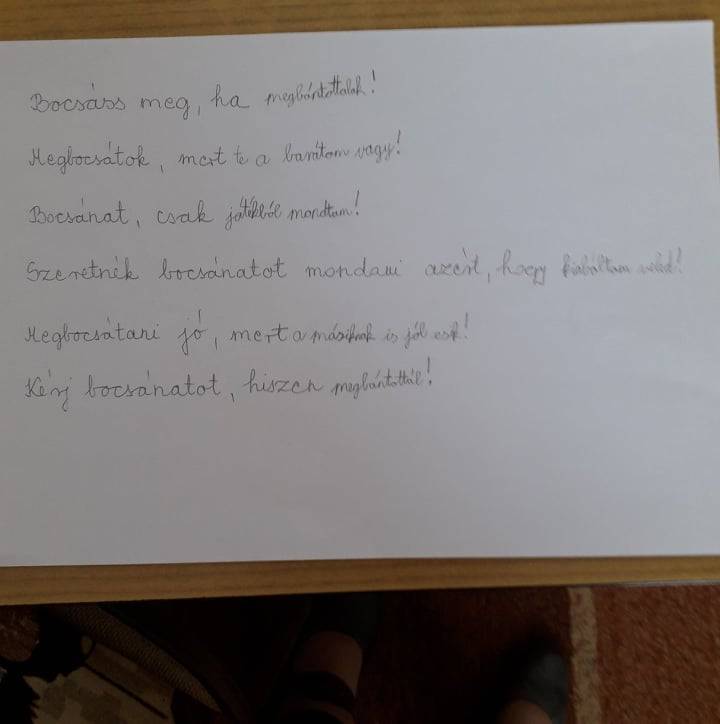 Bocsáss meg, ha megbántottalak!
Megbocsátok, mert te a barátom vagy!
Bocsánat, csak játékból mondtam!
Szeretnék bocsánatot mondani azért, hogy kiabáltam veled!
Megbocsátani jó, mert a másiknak is jól esik!
Kérj bocsánatot, hiszen megbántottál!